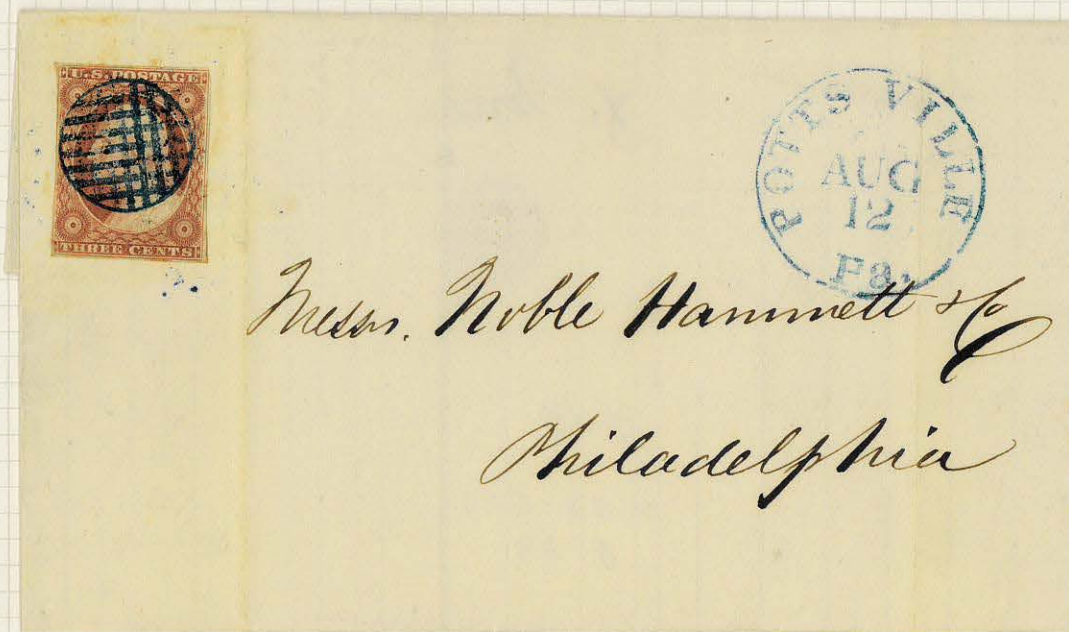 U.S. POSTAGE
THREE CENTS
POTTS VILLE
AUG
12
Pa.
Messrs. Noble Hammett & Co
Philadelphia